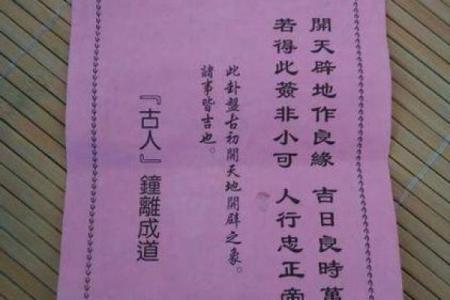 開天辟地作良緣　吉日良時萬
若得此簽非小可　人行忠正帝
此卦盤古初開天地開闢之象。
諸事皆吉也。
『古人』鐘離成道